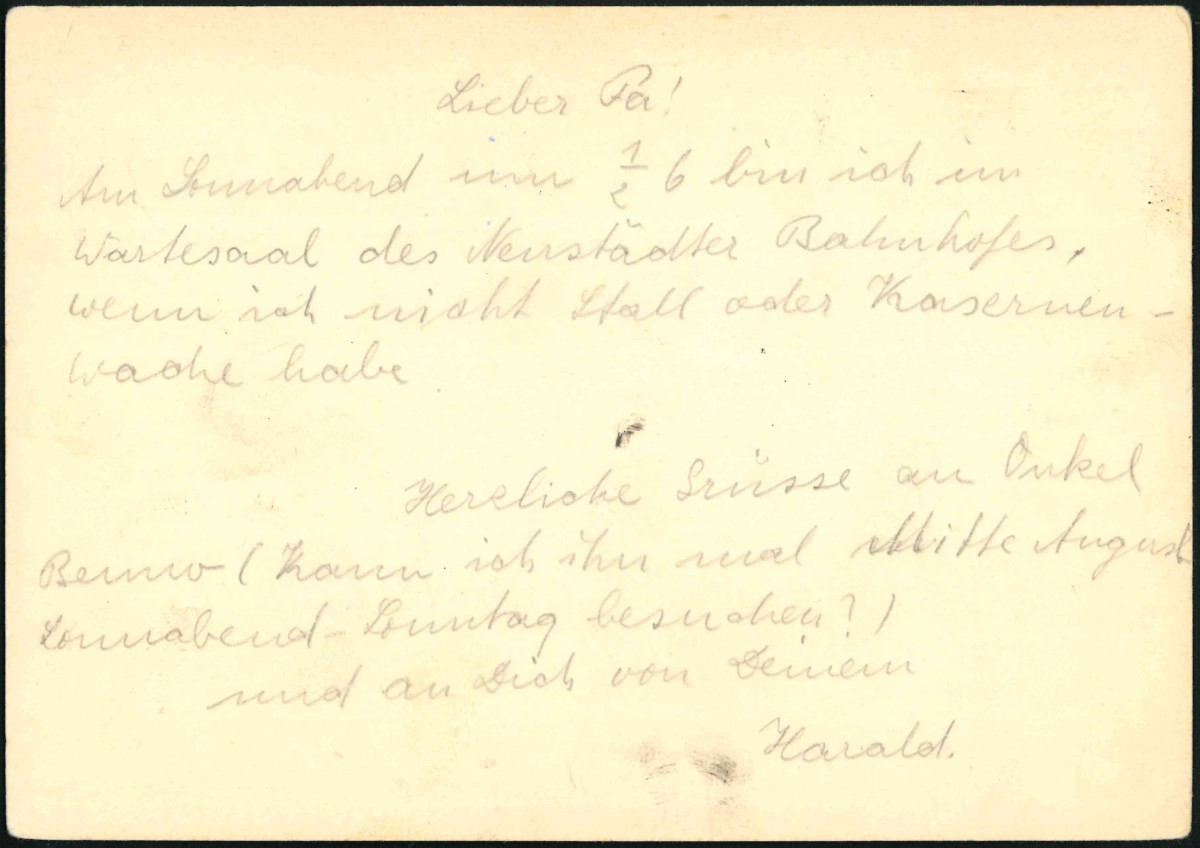 Lieber Pa!
Am Sonnabend um 1/2 6 bin ich im
Wartesaal des Neustädter Bahnhofes,
wenn ich nicht Stall oder Kasernen-
wache habe
Herzliche Grüsse an Onkel
Benno (Kann ich ihn mal Mitte August
Sonnabend-Sonntag besuchen?)
und an Dich von Deinem
Harald.